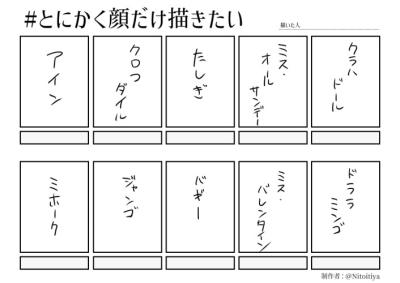 #とにかく顔だけ描きたい
描いた人
アイン
クロコ
ダイル
たしぎ
ミス・
オール
サンデー
クラハ
ドール
ミホーク
ジャンゴ
バギー
ミス・
バレンタイン
ドフラ
ミンゴ
制作者：@Nitoitiya